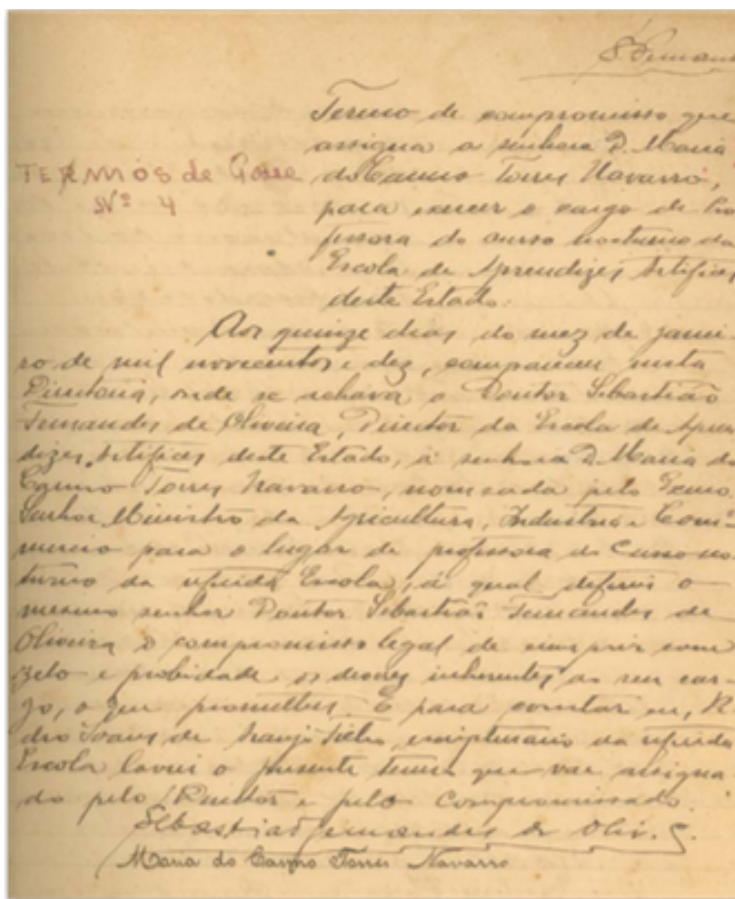 S. Fernand
Termo de compromisso que
assigna a senhora D. Maria
do Carmo Torres Navarro,
TERMOS de
Nº 4
para exercer o cargo de Pro
fessora do curso nocturno da
Escola de Aprendizes Artifices
deste Estado.
Aos quinze dias do mez de janei-
ro de mil novecentos e dez, compareceu nesta
Directoria, onde se achava o Doutor Sebastião
Fernandes de Oliveira, Director da Escola de Apren
dizes Artifices deste Estado, a senhora D. Maria do
Carmo Torres Navarro, nomeada pelo Exmo.
Senhor Ministro da Agricultura, Industria e Com
mercio para o lugar de professora do Curso no
turno da referida Escola, á qual deferiu o
mesmo senhor Doutor Sebastião Fernandes de
Oliveira o compromisso legal de cumprir com
zelo e probidade os deveres inherentes ao seu car-
go, o que prometteu. E para constar eu, Pe
dro Soares de Araujo Filho, escripturario da referida
Escola lavrei o presente termo que vae assigna
do pelo Director e pelo compromissado.
Sebastião Fernandes de Oliv.
Maria do Carmo Torres Navarro